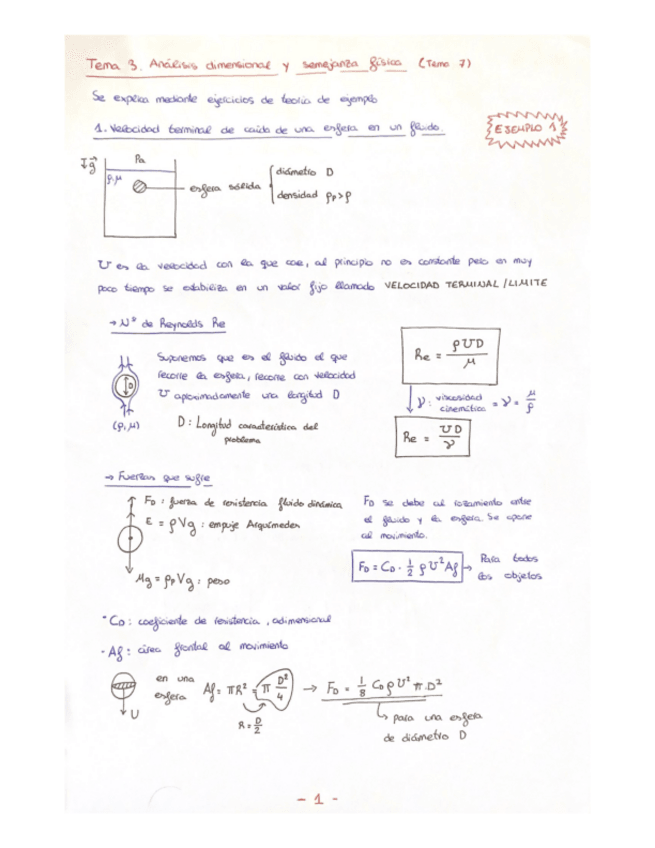 Tema 3. Análisis dimensional y semejanza física (Tema 7)
Se explica mediante ejercicios de teoría de ejemplo
1. Velocidad terminal de caída de una esfera en un fluido.
EJEMPLO 1
↓g
Pa
ρ, μ
esfera sólida
diámetro D
densidad ρp>ρ
U es la velocidad con la que cae, al principio no es constante pero en muy
poco tiempo se estabiliza en un valor fijo llamado VELOCIDAD TERMINAL/LIMITE
→ Nº de Reynolds Re
Suponemos que es el fluido el que
recorre la esfera, recorre con velocidad
U aproximadamente una longitud D
D
(ρ, μ)
D: Longitud característica del
problema
Re = ρUD/μ
ν: viscosidad cinemática = ν = μ/ρ
Re = UD/ν
→ Fuerzas que sufre
FD: fuerza de resistencia fluido dinámica
E = ρVg: empuje Arquímedes
Mg = ρpVg: peso
FD se debe al rozamiento entre
el fluido y la esfera. Se opone
al movimiento.
FD = CD · 1/2 ρU²Af → Para todos
los objetos
· CD: coeficiente de resistencia, adimensional
· Af: área frontal al movimiento
U
en una
esfera
Af = πR² = π D²/4 → FD = 1/8 CD ρU² π D²
R = D/2
para una esfera
de diámetro D
- 1 -